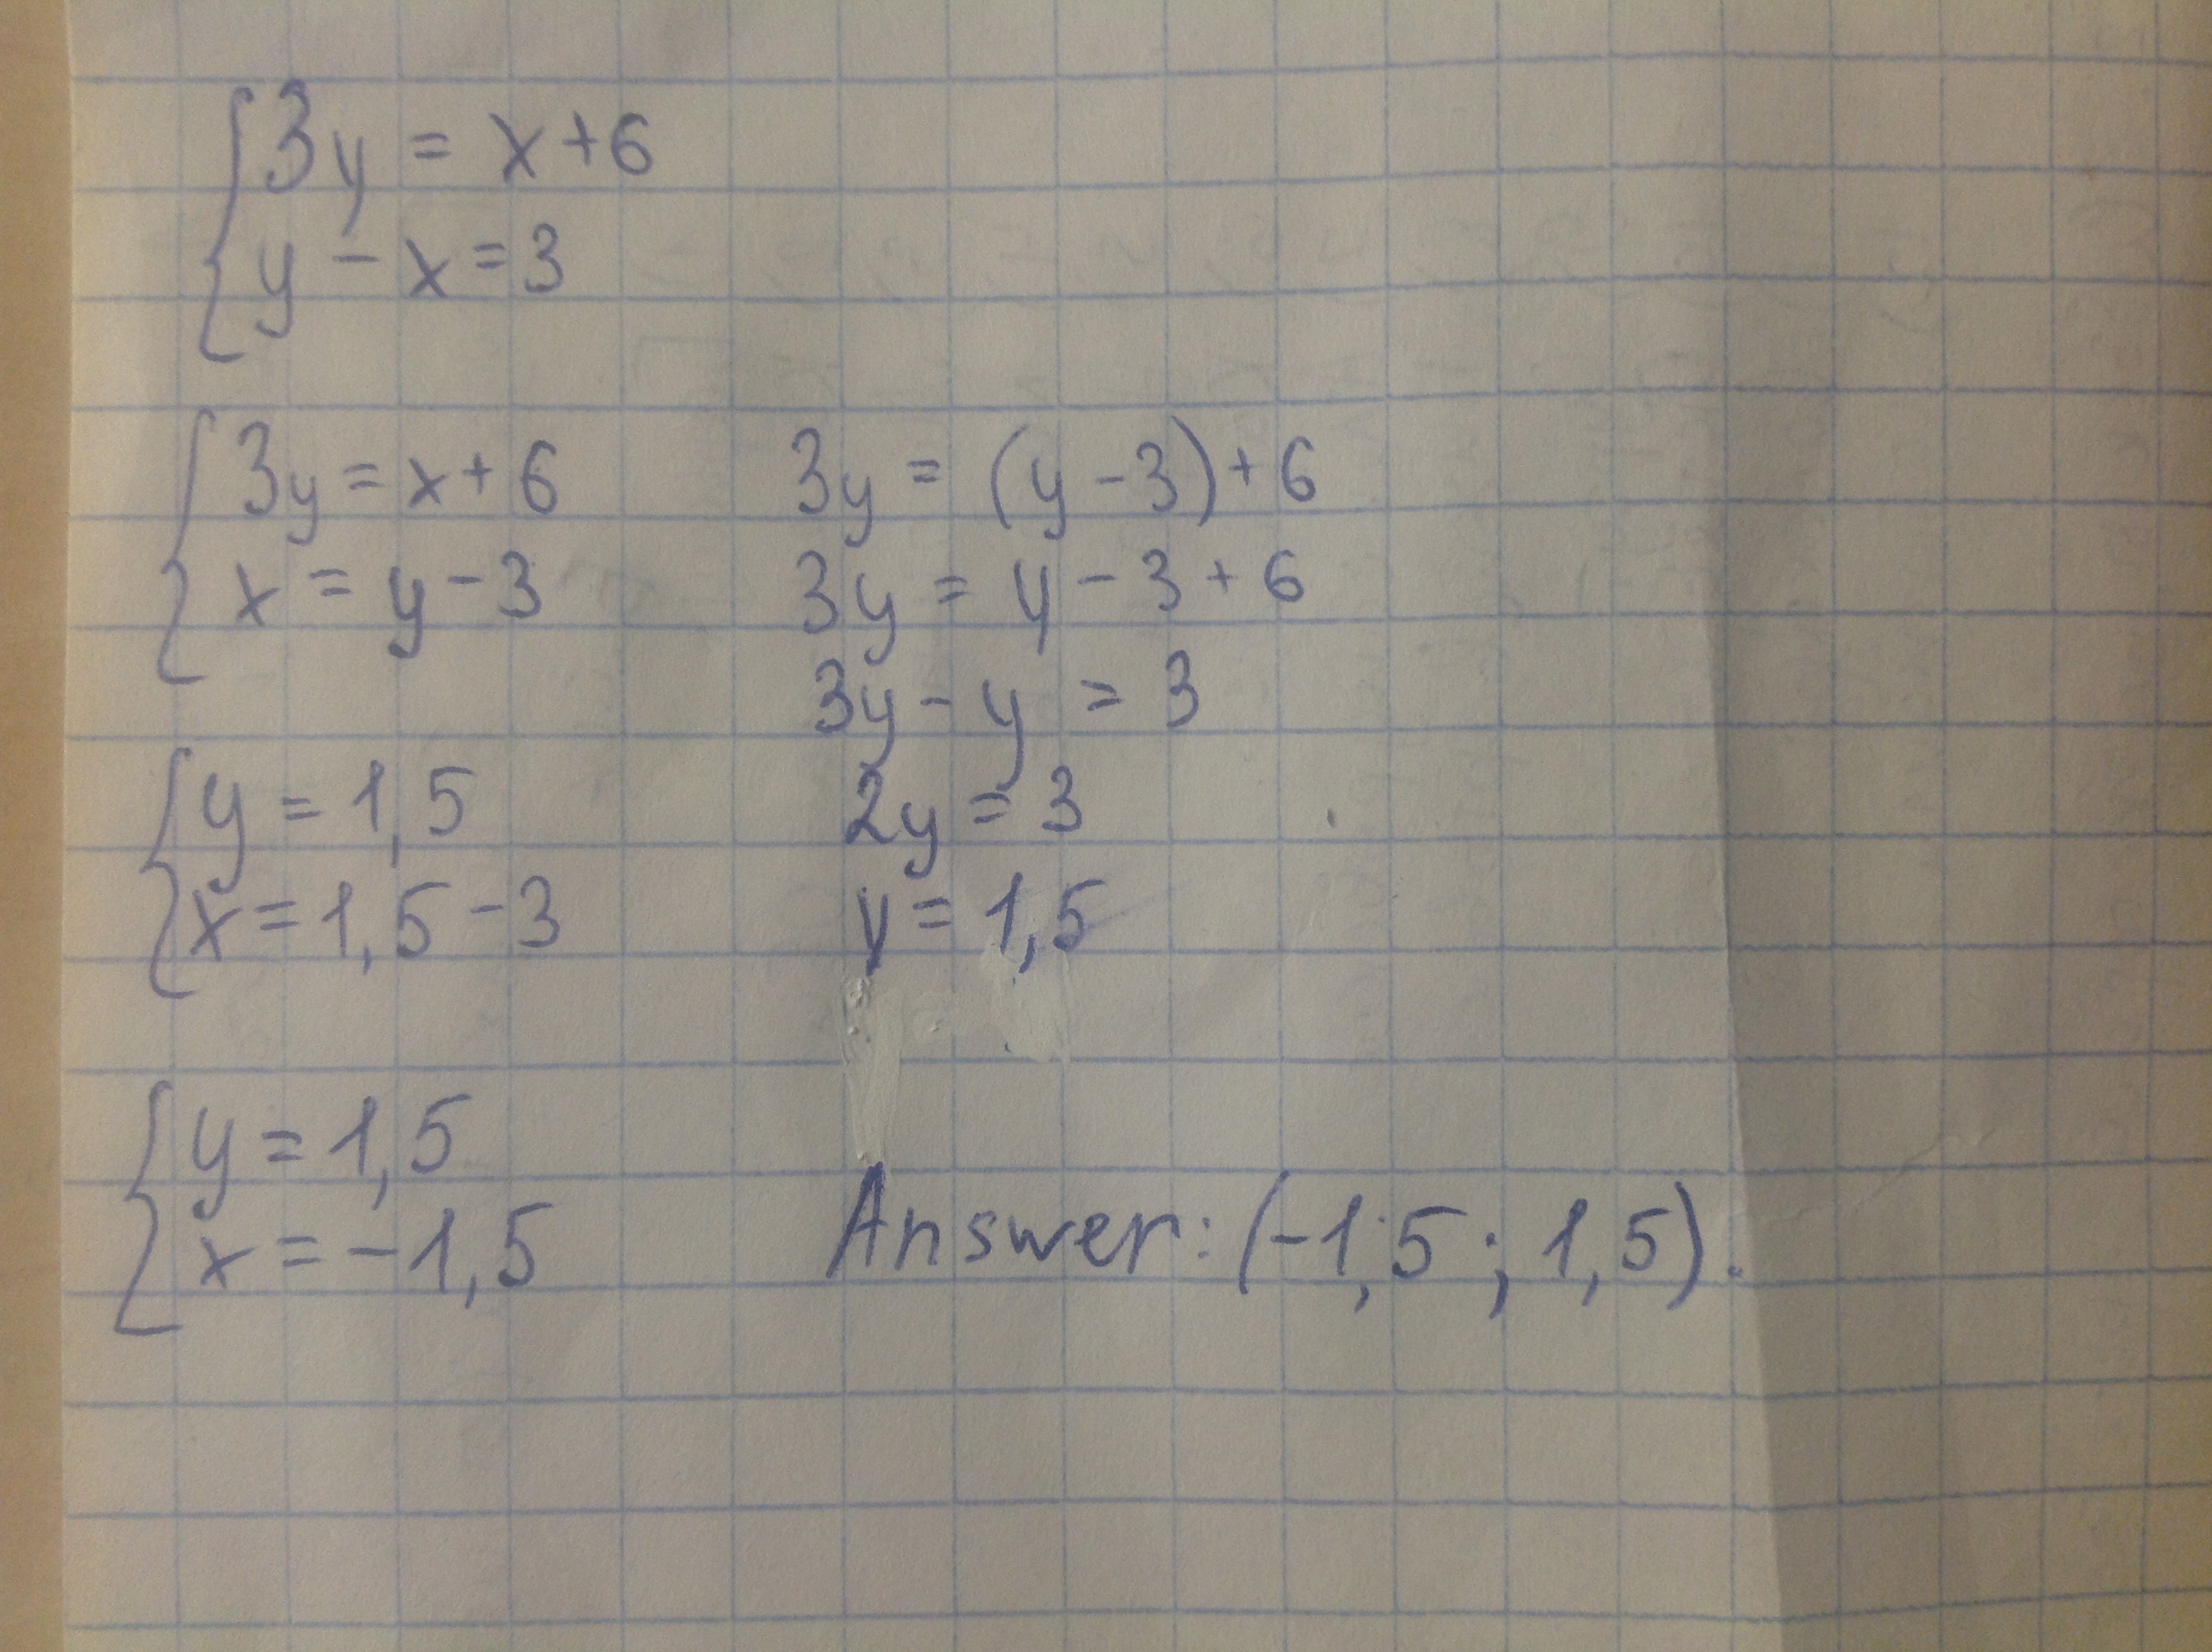 3y = x+6
y - x = 3
3y = x + 6
x = y - 3
3y = (y - 3) + 6
3y = y - 3 + 6
3y - y = 3
2y = 3
y = 1,5
y = 1,5
x = 1,5 - 3
y = 1,5
x = -1,5
Answer: (-1,5; 1,5).